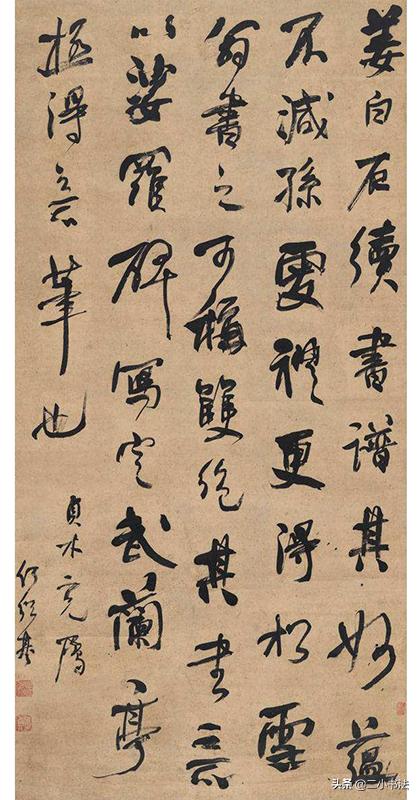 姜白石續書譜其妙蘊
不減孫虔禮更得松雪
翁書之可稱雙絕其書意
以娑羅碑寫定武蘭亭
極得意筆也
貞木屬
何紹基
头条 @二小书法